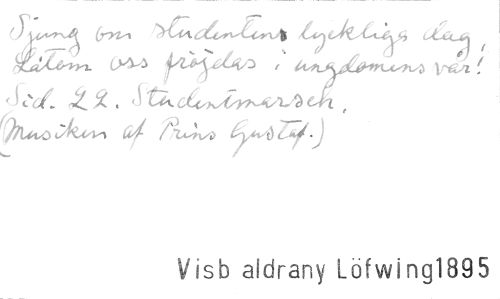 Sjung om studentens lyckliga dag,
Låtom oss fröjdas i ungdomens vår!
Sid. 22. Studentmarsch.
(Musiken af Prins Gustaf.)
Visb aldrany Löfwing1895